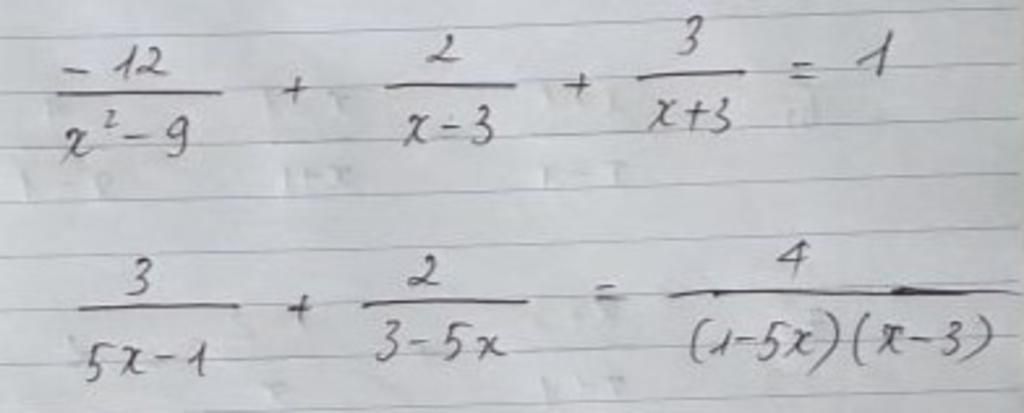 -12/(x²-9) + 2/(x-3) + 3/(x+3) = 1
3/(5x-1) + 2/(3-5x) = 4/((1-5x)(x-3))